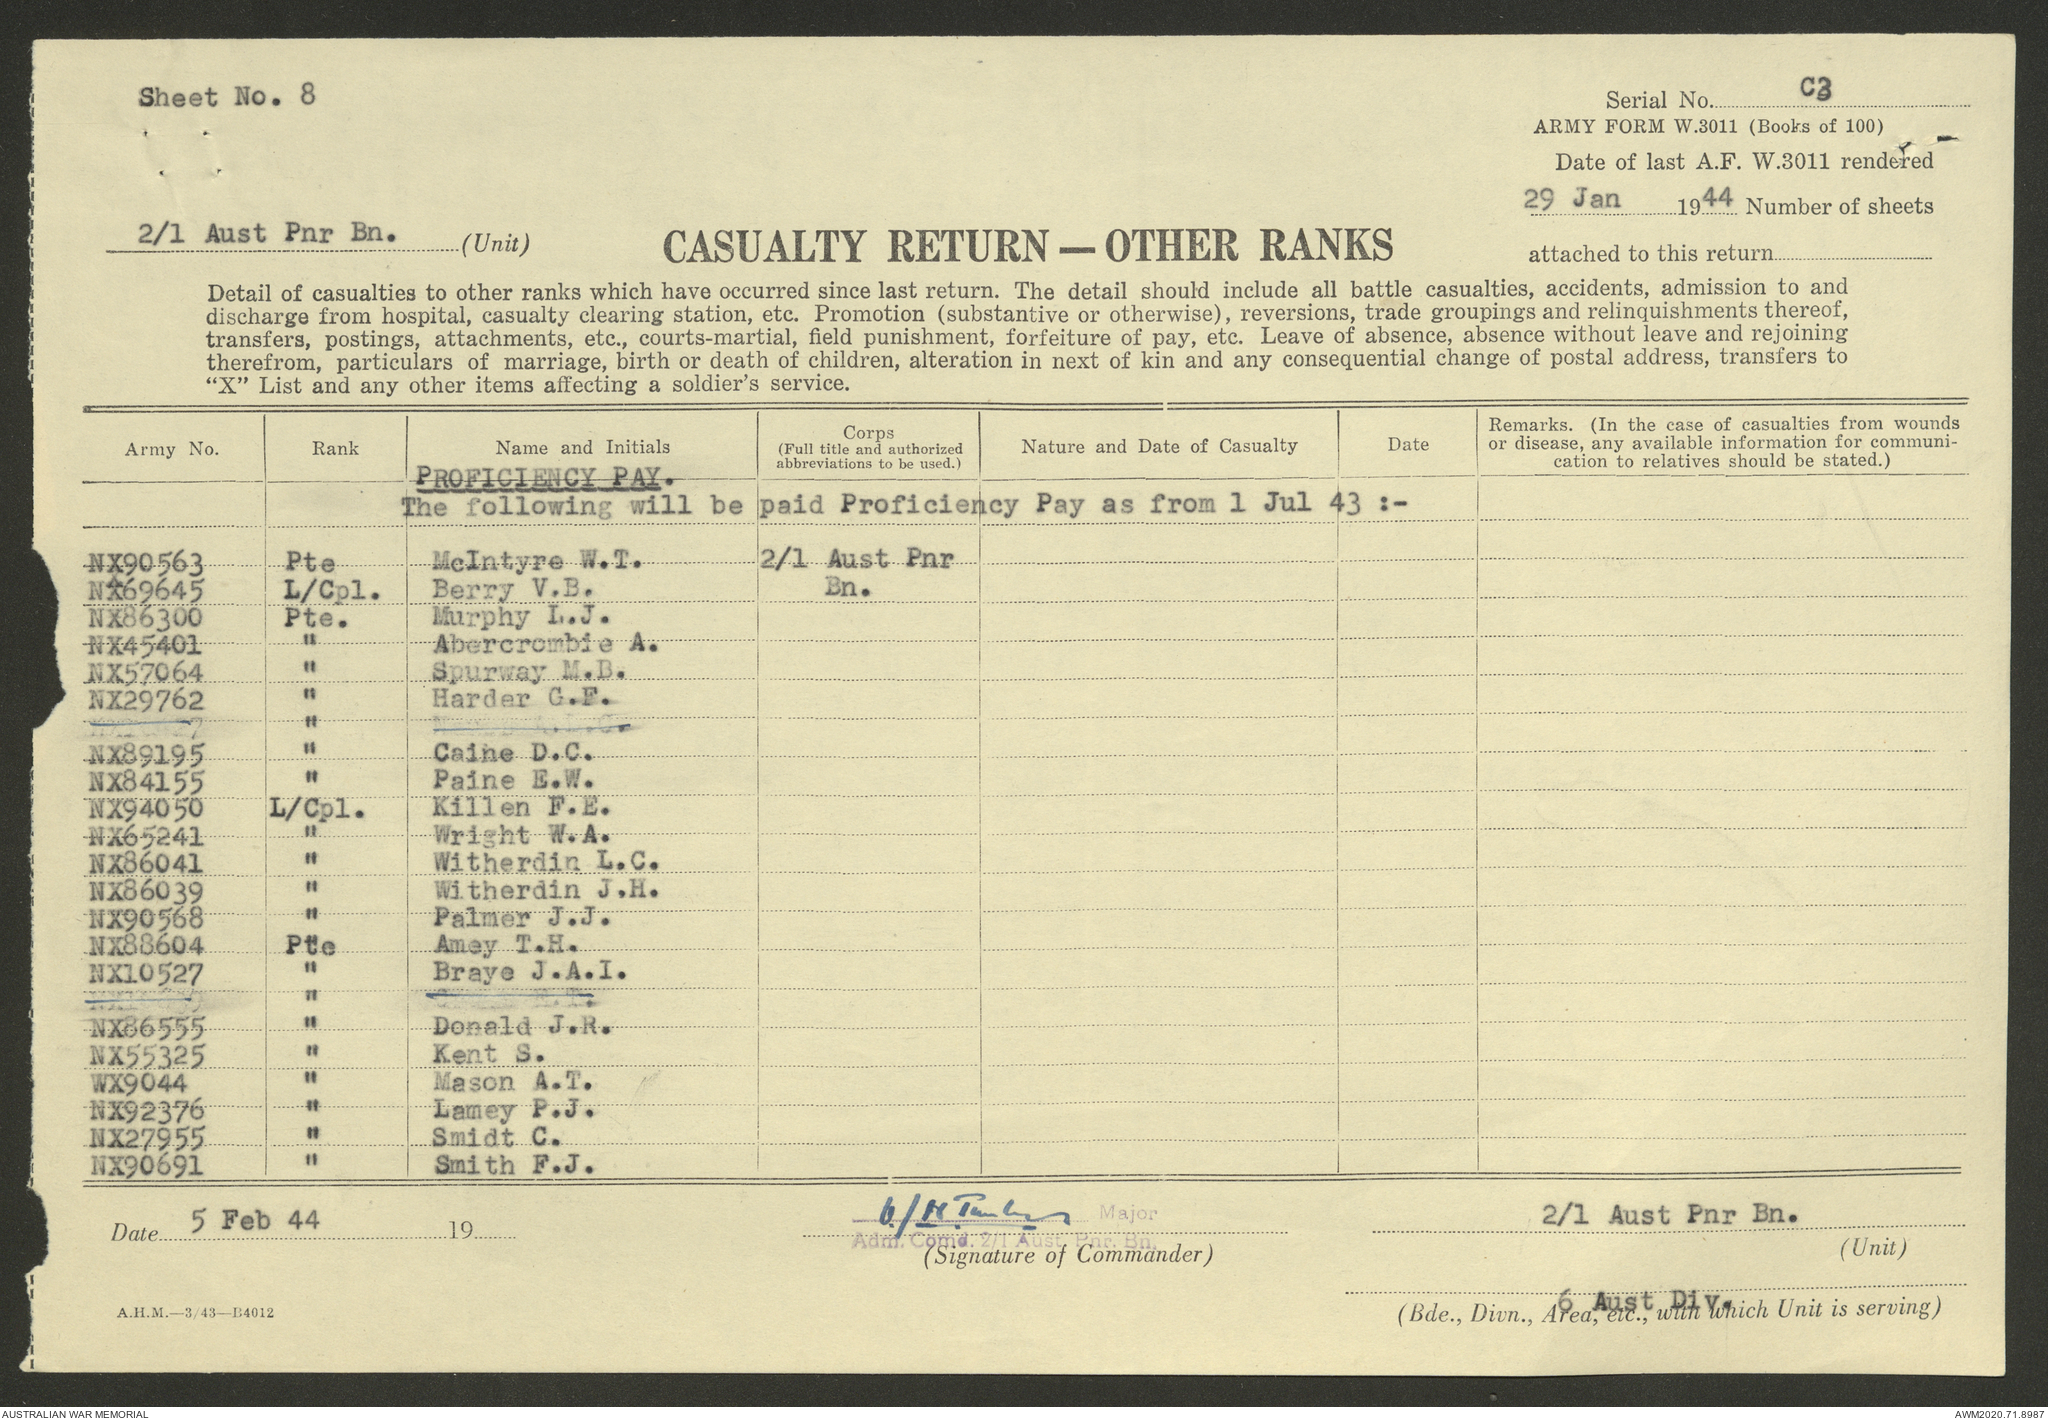 Sheet No. 8
Serial No. C3
ARMY FORM W.3011 (Books of 100)
Date of last A.F. W.3011 rendered
29 Jan 1944 Number of sheets
attached to this return
2/1 Aust Pnr Bn. (Unit)
CASUALTY RETURN — OTHER RANKS
Detail of casualties to other ranks which have occurred since last return. The detail should include all battle casualties, accidents, admission to and
discharge from hospital, casualty clearing station, etc. Promotion (substantive or otherwise), reversions, trade groupings and relinquishments thereof,
transfers, postings, attachments, etc., courts-martial, field punishment, forfeiture of pay, etc. Leave of absence, absence without leave and rejoining
therefrom, particulars of marriage, birth or death of children, alteration in next of kin and any consequential change of postal address, transfers to
"X" List and any other items affecting a soldier's service.
Army No. Rank Name and Initials Corps (Full title and authorized abbreviations to be used.) Nature and Date of Casualty Date Remarks. (In the case of casualties from wounds or disease, any available information for communi-cation to relatives should be stated.)
PROFICIENCY PAY.
The following will be paid Proficiency Pay as from 1 Jul 43 :-
NX90563 Pte McIntyre W.T. 2/1 Aust Pnr
NX69645 L/Cpl. Berry V.B. Bn.
NX86300 Pte. Murphy L.J.
NX45401 " Abercrombie A.
NX57064 " Spurway M.B.
NX29762 " Harder G.F.
"
NX89195 " Caine D.C.
NX84155 " Paine E.W.
NX94050 L/Cpl. Killen F.E.
NX65241 " Wright W.A.
NX86041 " Witherdin L.C.
NX86039 " Witherdin J.H.
NX90568 " Palmer J.J.
NX88604 Pte Amey T.H.
NX10527 " Braye J.A.I.
"
NX86555 " Donald J.R.
NX55325 " Kent S.
WX9044 " Mason A.T.
NX92376 " Lamey P.J.
NX27955 " Smidt C.
NX90691 " Smith F.J.
Date 5 Feb 44 19
Major
Adm. Comd. 2/1 Aust. Pnr. Bn.
(Signature of Commander)
2/1 Aust Pnr Bn.
(Unit)
6 Aust Div.
(Bde., Divn., Area, etc., with which Unit is serving)
A.H.M.—3/43—B4012
AUSTRALIAN WAR MEMORIAL
AWM2020.71.8987